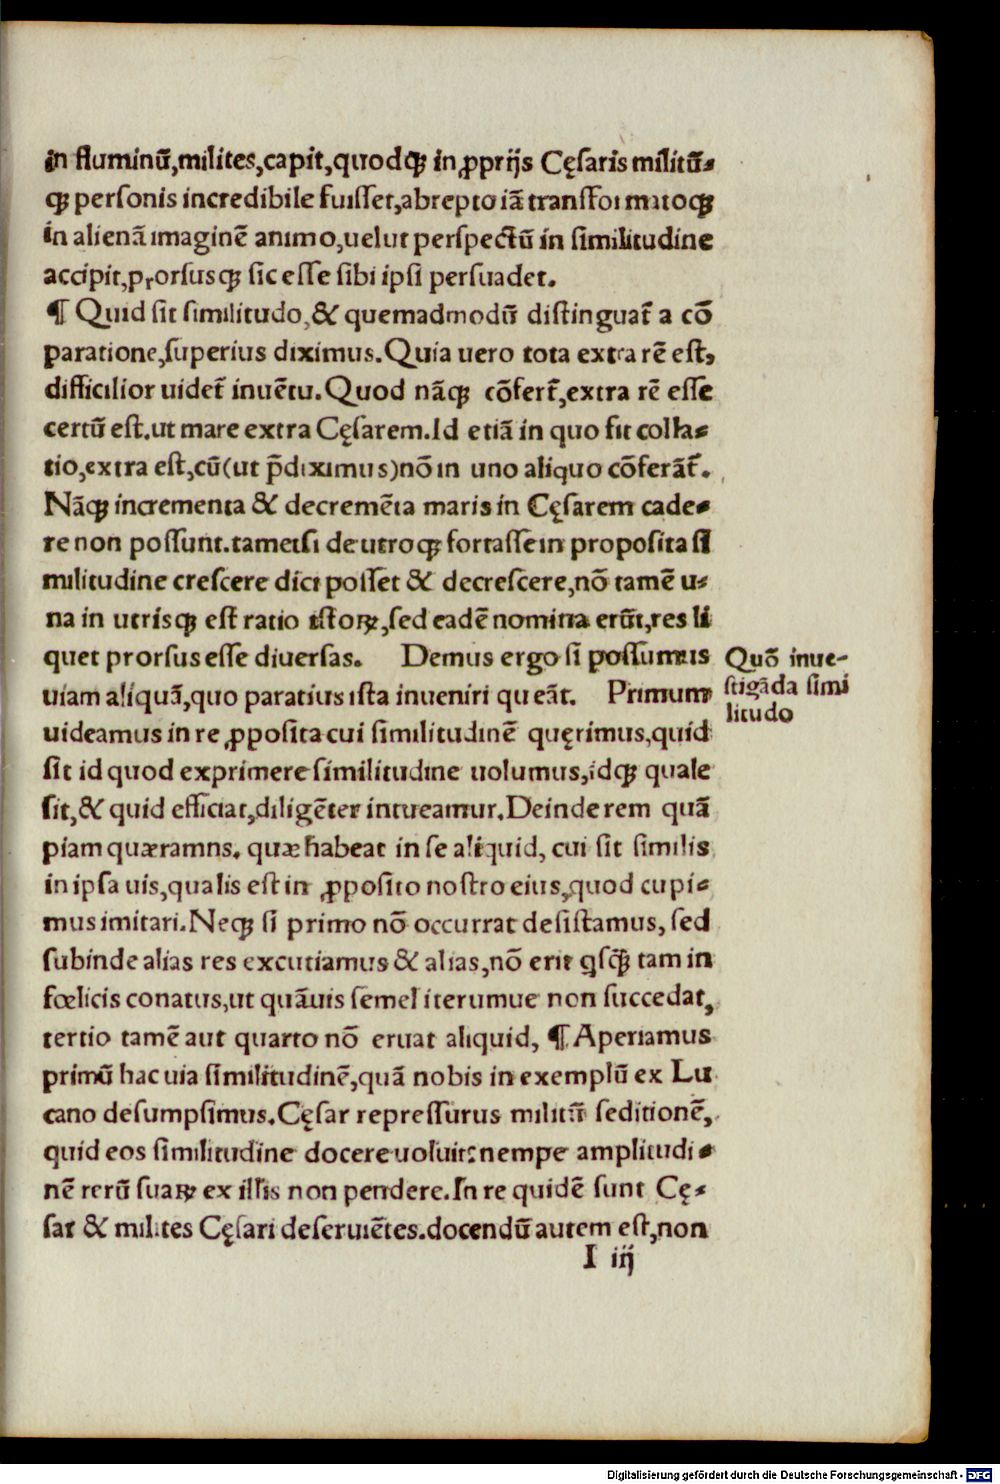 in fluminū,milites,capit,quodqꝫ in ꝓprijs Cęsaris militū-
qꝫ personis incredibile fuisset,abrepto iā transformatoqꝫ
in alienā imaginē animo,uelut perspectū in similitudine
accipit,prorsusqꝫ sic esse sibi ipsi persuadet.
¶ Quid sit similitudo,& quemadmodū distinguat̄ a cō
paratione,superius diximus.Quia uero tota extra rē est,
difficilior uidet̄ inuētu.Quod nāqꝫ cōfert̄,extra rē esse
certū est.ut mare extra Cęsarem.Id etiā in quo fit colla-
tio,extra est,cū(ut p̄diximus)nō in uno aliquo cōferāt̄.
Nāqꝫ incrementa & decremēta maris in Cęsarem cade-
re non possunt.tametsi de utroqꝫ fortasse in proposita si
militudine crescere dici posset & decrescere,nō tamē u-
na in utrisqꝫ est ratio istoꝝ,sed eadē nomina erūt,res li
quet prorsus esse diuersas. Demus ergo si possumus
uiam aliquā,quo paratius ista inueniri queāt. Primum
uideamus in re ꝓposita cui similitudinē quęrimus,quid
sit id quod exprimere similitudine uolumus,idqꝫ quale
sit,& quid efficiat,diligēter intueamur.Deinde rem quā
piam quæramns. quæ habeat in se aliquid, cui sit similis
in ipsa uis,qualis est in ꝓposito nostro eius,quod cupi-
mus imitari.Neqꝫ si primo nō occurrat desistamus, sed
subinde alias res excutiamus & alias,nō erit ꝗsqꝫ̄ tam in
fœlicis conatus,ut quāuis semel iterumue non succedat,
tertio tamē aut quarto nō eruat aliquid, ¶ Aperiamus
primū hac uia similitudinē,quā nobis in exemplū ex Lu
cano desumpsimus.Cęsar repressurus militū seditionē,
quid eos similitudine docere uoluit:nempe amplitudi-
nē rerū suaꝝ ex illis non pendere.In re quidē sunt Cę-
sar & milites Cęsari deseruiētes.docendū autem est,non
I iij
Quō inue-
stigāda simi
litudo
Digitalisierung gefördert durch die Deutsche Forschungsgemeinschaft - DFG